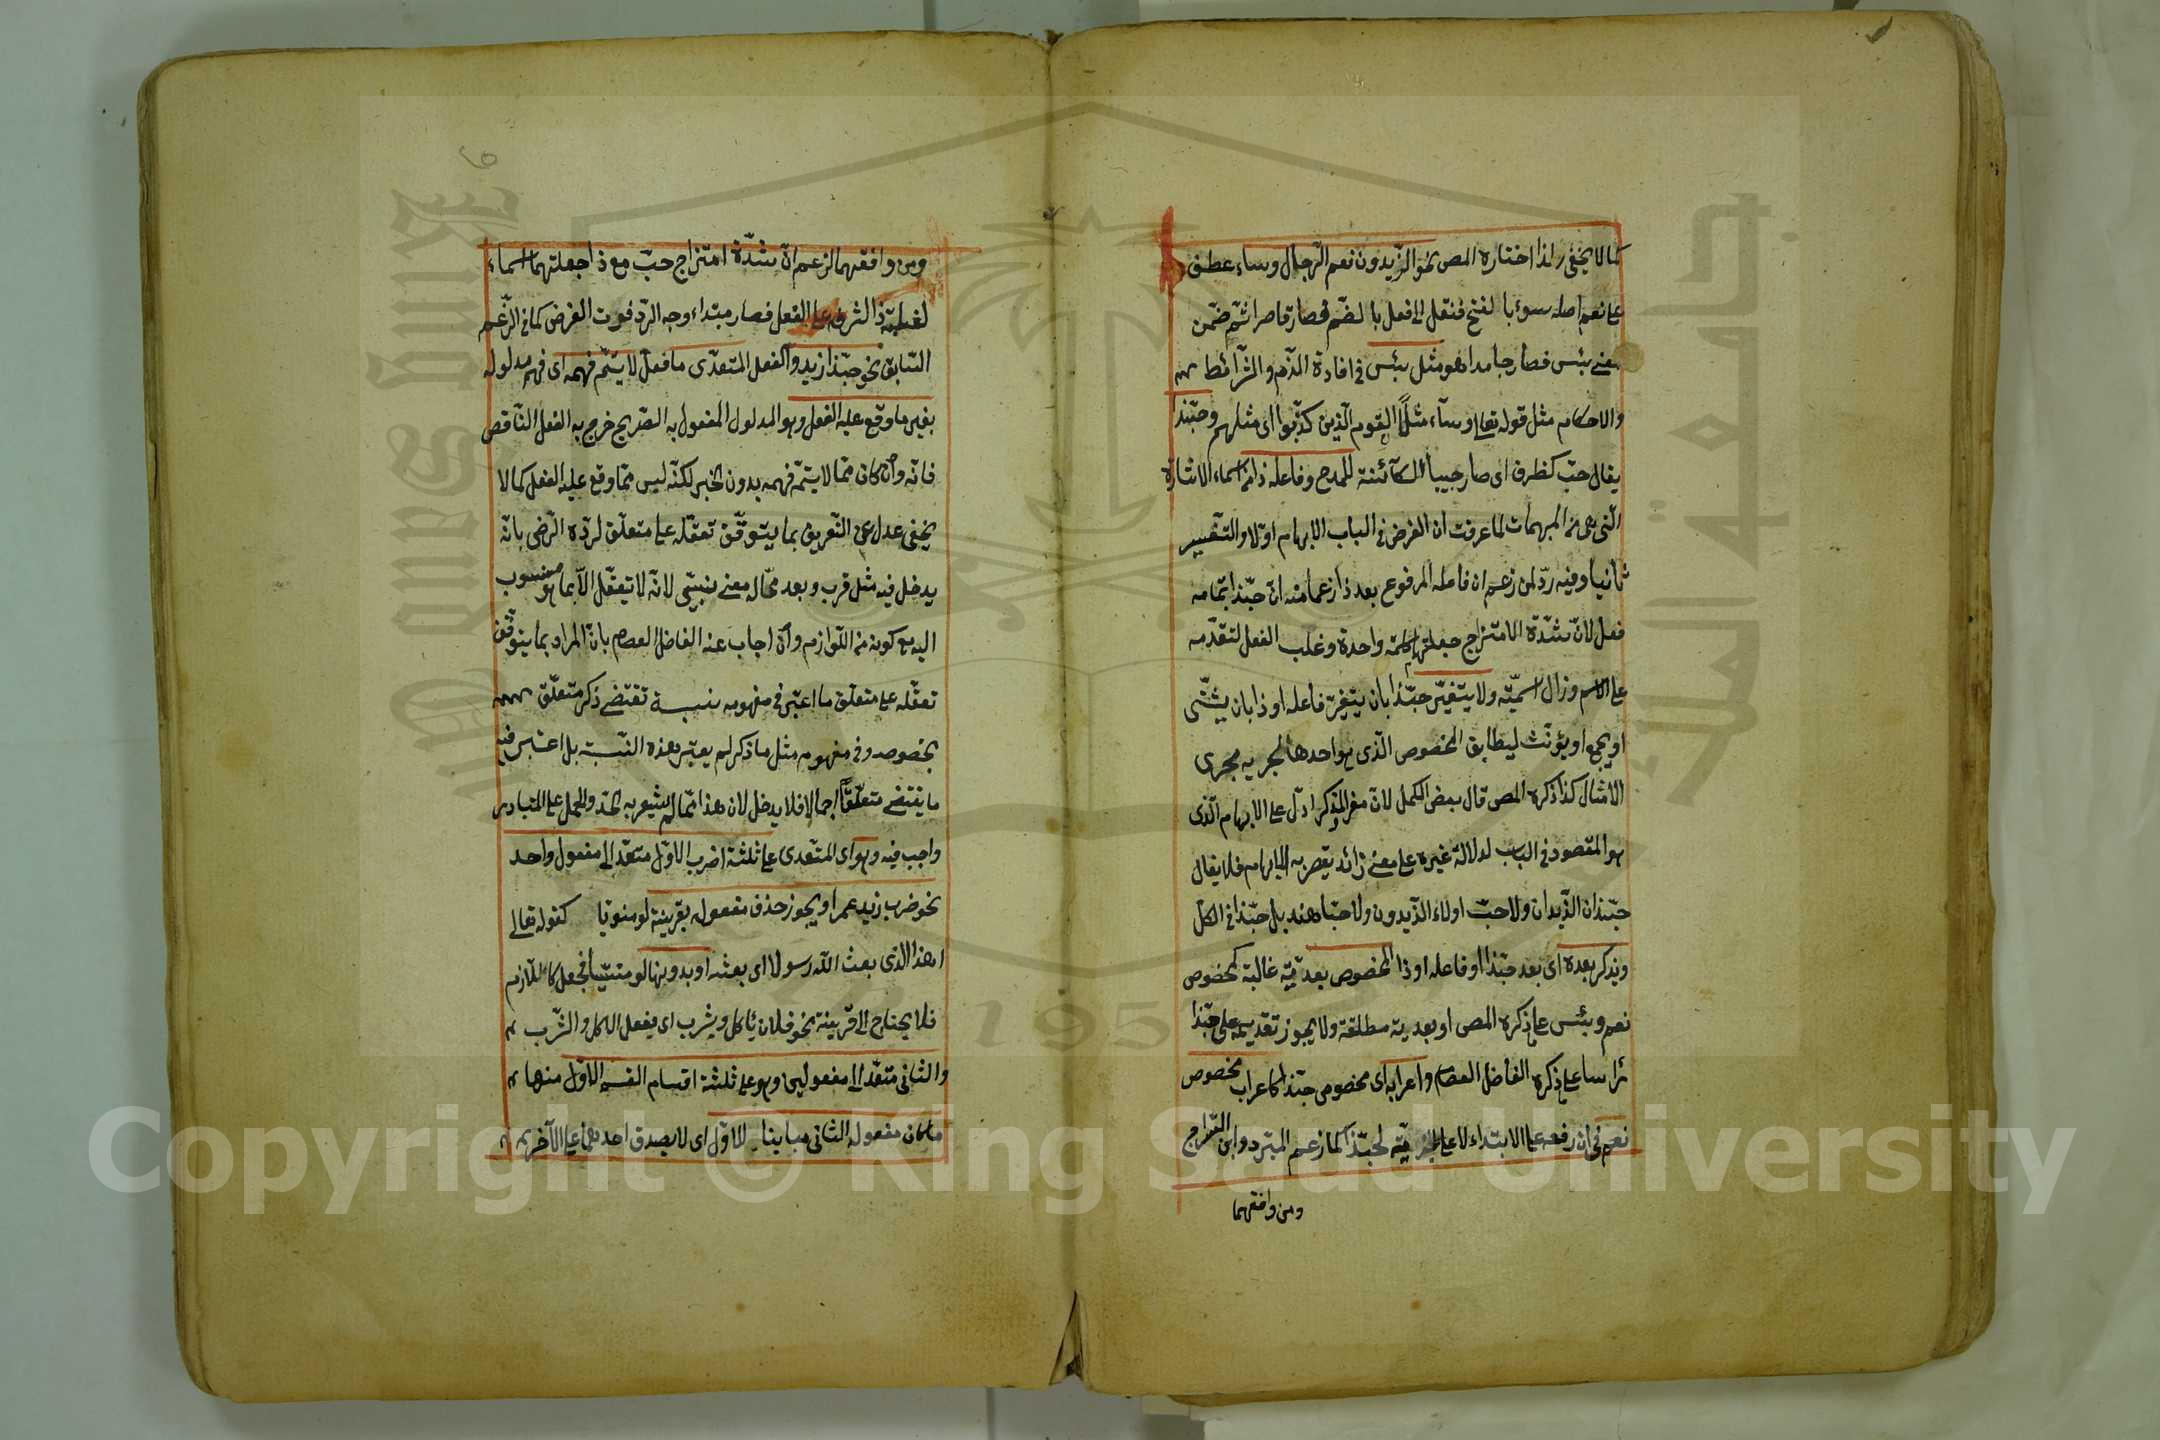 كما لا يخفى ولذا اختاره المص نحو الزيدون نعم الرجال وساء عطف
على نعم اصله سوء بالفتح فنقل الى فعل بالضم فصار قاصرا ثم ضمن
معنى بئس فصار جامدا فهو مثل بئس في افادة الذم والشرائط
والاحكام مثل قوله تعالى وساء مثلا القوم الذين كذبوا اى مثلهم وحبذا
يقال حب كظرف اى صار حبيبا الكائنة للمدح وفاعله ذا من اسماء الاشارة
التي هي من المبهمات لما عرفت ان الغرض في الباب الابهام اولا والتفسير
ثانيا وفيه رد لمن زعم ان فاعله المرفوع بعد ذا زعما منه ان حبذا بتمامه
فعل لان شدة الامتزاج جعلتهما كلمة واحدة وغلب الفعل لتقدمه
على الاسم وزال اسميته ولا يتغير حبذا بان يتغير فاعله او ذا بان يثنى
او يجمع او يؤنث ليطابق المخصوص الذى هو احدها لجريه مجرى
الامثال كذا ذكره المص قال بعض الكمل لان مفرد المذكر ادل على الابهام الذى
هو المقصود في الباب لدلالة غيره على معنى زائد يقصر به الابهام فلا يقال
حبذان الزيدان ولا حب اولاء الزيدون ولا حبتا هند بل حبذا في الكل
ويذكر بعده اى بعد حبذا او فاعله او ذا المخصوص بعدية غالبة كمخصوص
نعم وبئس على ما ذكره المص او بعدية مطلقة ولا يجوز تقديمه على حبذا
رأسا على ما ذكره الفاضل العصام واعرابه اى مخصوص حبذا كاعراب مخصوص
نعم في ان رفعه على الابتداء لا على الخبرية لحبذا كما زعم المبرد وابن السراج
ومن وافقهما
ومن وافقهما لزعم ان شدة امتزاج حب مع ذا جعلتهما اسماء
لغلبة ذا لشرفه على الفعل فصار مبتداء وجه الرد فوت الغرض كما في الزعم
السابق نحو حبذا زيد والفعل المتعدى ما فعل لا يتم فهمه اى فهم مدلوله
بغير ما وقع عليه الفعل وهو المدلول المفعول به الصريح خرج به الفعل الناقص
فانه وان كان مما لا يتم فهمه بدون الخبر لكنه ليس مما وقع عليه الفعل كما لا
يخفى عدل عن التعريف بما يتوقف تعقله على متعلق لرده الرضى بانه
يدخل فيه مثل قرب وبعد مما له معنى نسبى لانه لا يتعقل الا بما هو منسوب
اليه مع كونه من اللوازم وان اجاب عنه الفاضل العصام بان المراد بما يتوقف
تعقله على متعلق ما اعتبر في مفهومه نسبة تقتضى ذكر متعلق
بخصوصه وفي مفهومه مثل ما ذكر لم يعتبر هذه النسبة بل اعتبر فيه
ما يقتضى متعلقا اجمالا فلا يدخل لان هذا مما لم يشعر به الحد والحمل على المتبادر
واجب فيه وهو اى المتعدى على ثلثة اضرب الاول متعد الى مفعول واحد
نحو ضرب زيد عمرا ويجوز حذف مفعوله بقرينة لو منويا كقوله تعالى
اهذا الذى بعث الله رسولا اى بعثه او بدونها لو منسيا فجعل كاللازم
فلا يحتاج الى قرينة نحو فلان يأكل ويشرب اى يفعل الاكل والشرب
والثانى متعد الى مفعولين وهو على ثلثة اقسام القسم الاول منها
ما كان مفعوله الثانى مباينا للاول اى لا يصدق احدهما على الآخر